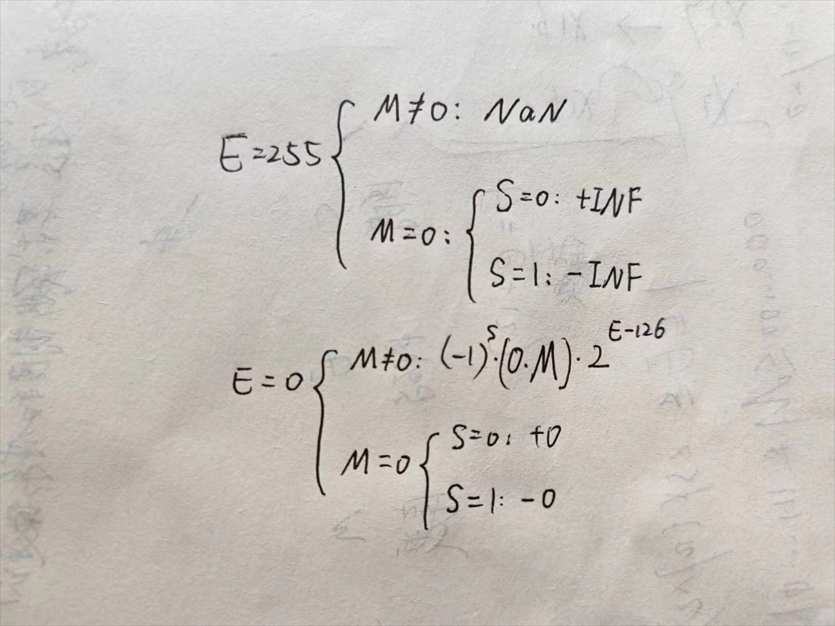 E=255
M≠0: NaN
M=0:
S=0: +INF
S=1: -INF
E=0
M≠0: (-1)^S·(0.M)·2^{E-126}
M=0
S=0: +0
S=1: -0